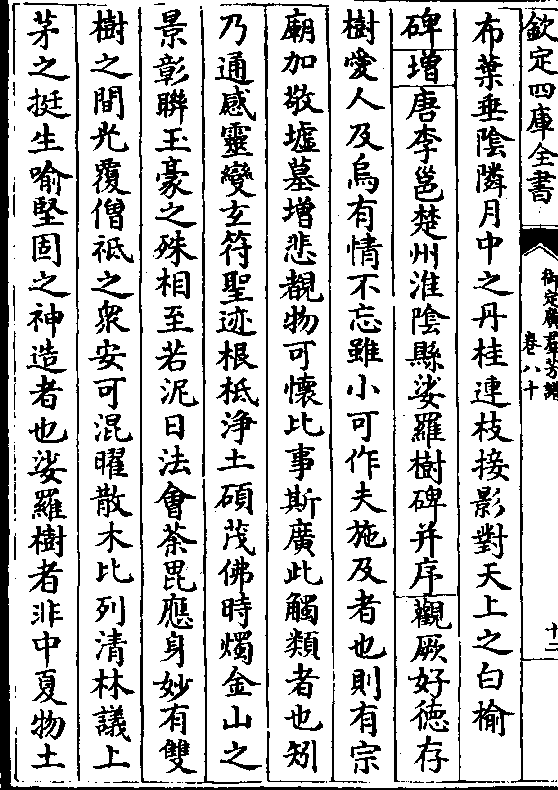 欽定四庫全書
御定廣羣芳譜
卷八十
十三
布葉垂陰隣月中之丹桂連枝接影對天上之白榆
碑增唐李邕楚州淮陰縣娑羅樹碑并序觀厥好德存
樹愛人及烏有情不忘雖小可作夫施及者也則有宗
廟加敬墟墓增悲覩物可懷比事斯廣此觸類者也矧
乃通感靈變玄符聖迹根柢淨土碩茂佛時燭金山之
景彰聯玉豪之殊相至若泥日法會荼毘應身妙有雙
樹之間光覆僧祇之衆安可混曜散木比列清林議上
茅之挺生喻堅固之神造者也娑羅樹者非中夏物土